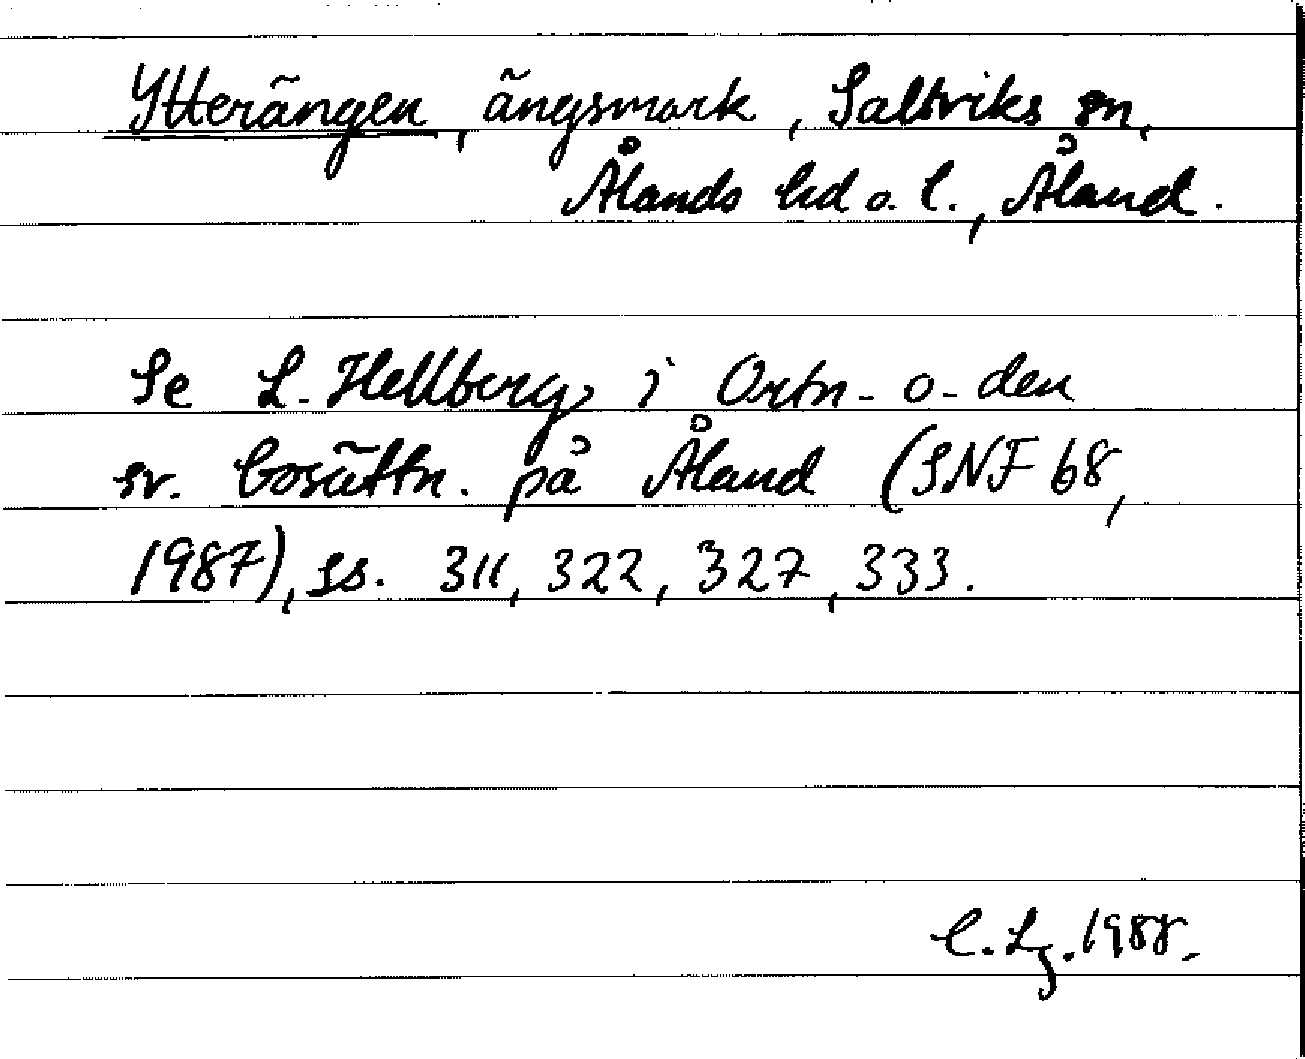 Ytterängen, ängsmark, Saltviks sn,
Ålands hd o. l., Åland.
Se L. Hellberg i Ortn. o. den
sv. bosättn. på Åland (SNF 68,
1987), ss. 311, 322, 327, 333.
C. Lg. 1988.